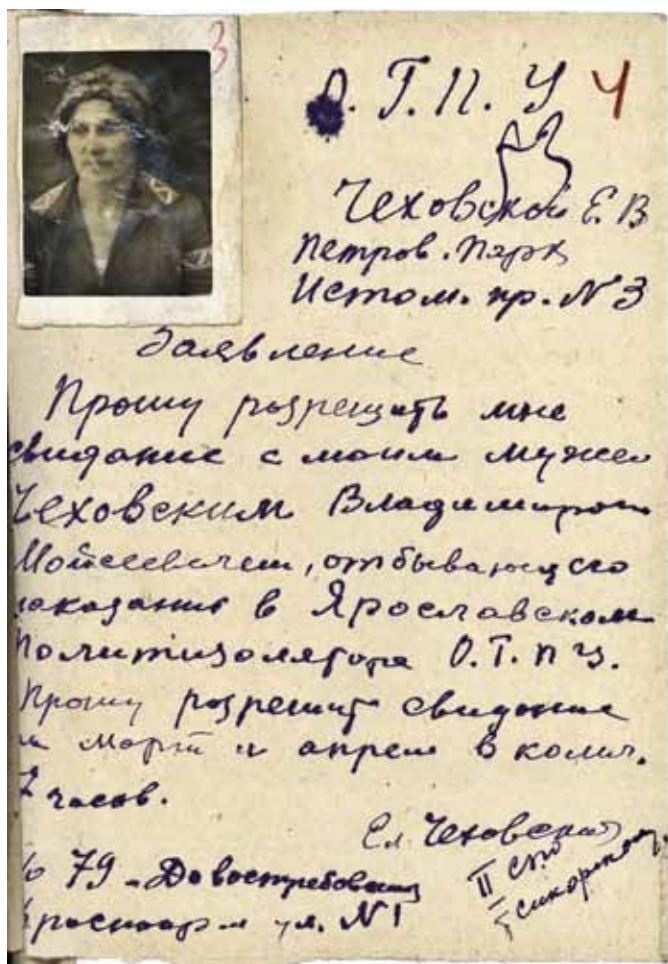 3
О. Г. П. У 4
Чеховской Е. В
Петров. Парк
Истом. пр. № 3
Заявление
Прошу розрешить мне
свидание с моим мужем
Чеховским Владимиром
Мойсеевичем, отбывающего
наказания в Ярославском
политизоляторе О. Г. П У.
Прошу розрешит свидание
на март и апрель в колич.
часов.
Ел. Чеховская
II СПО
79 - До востребования
ул. № 1